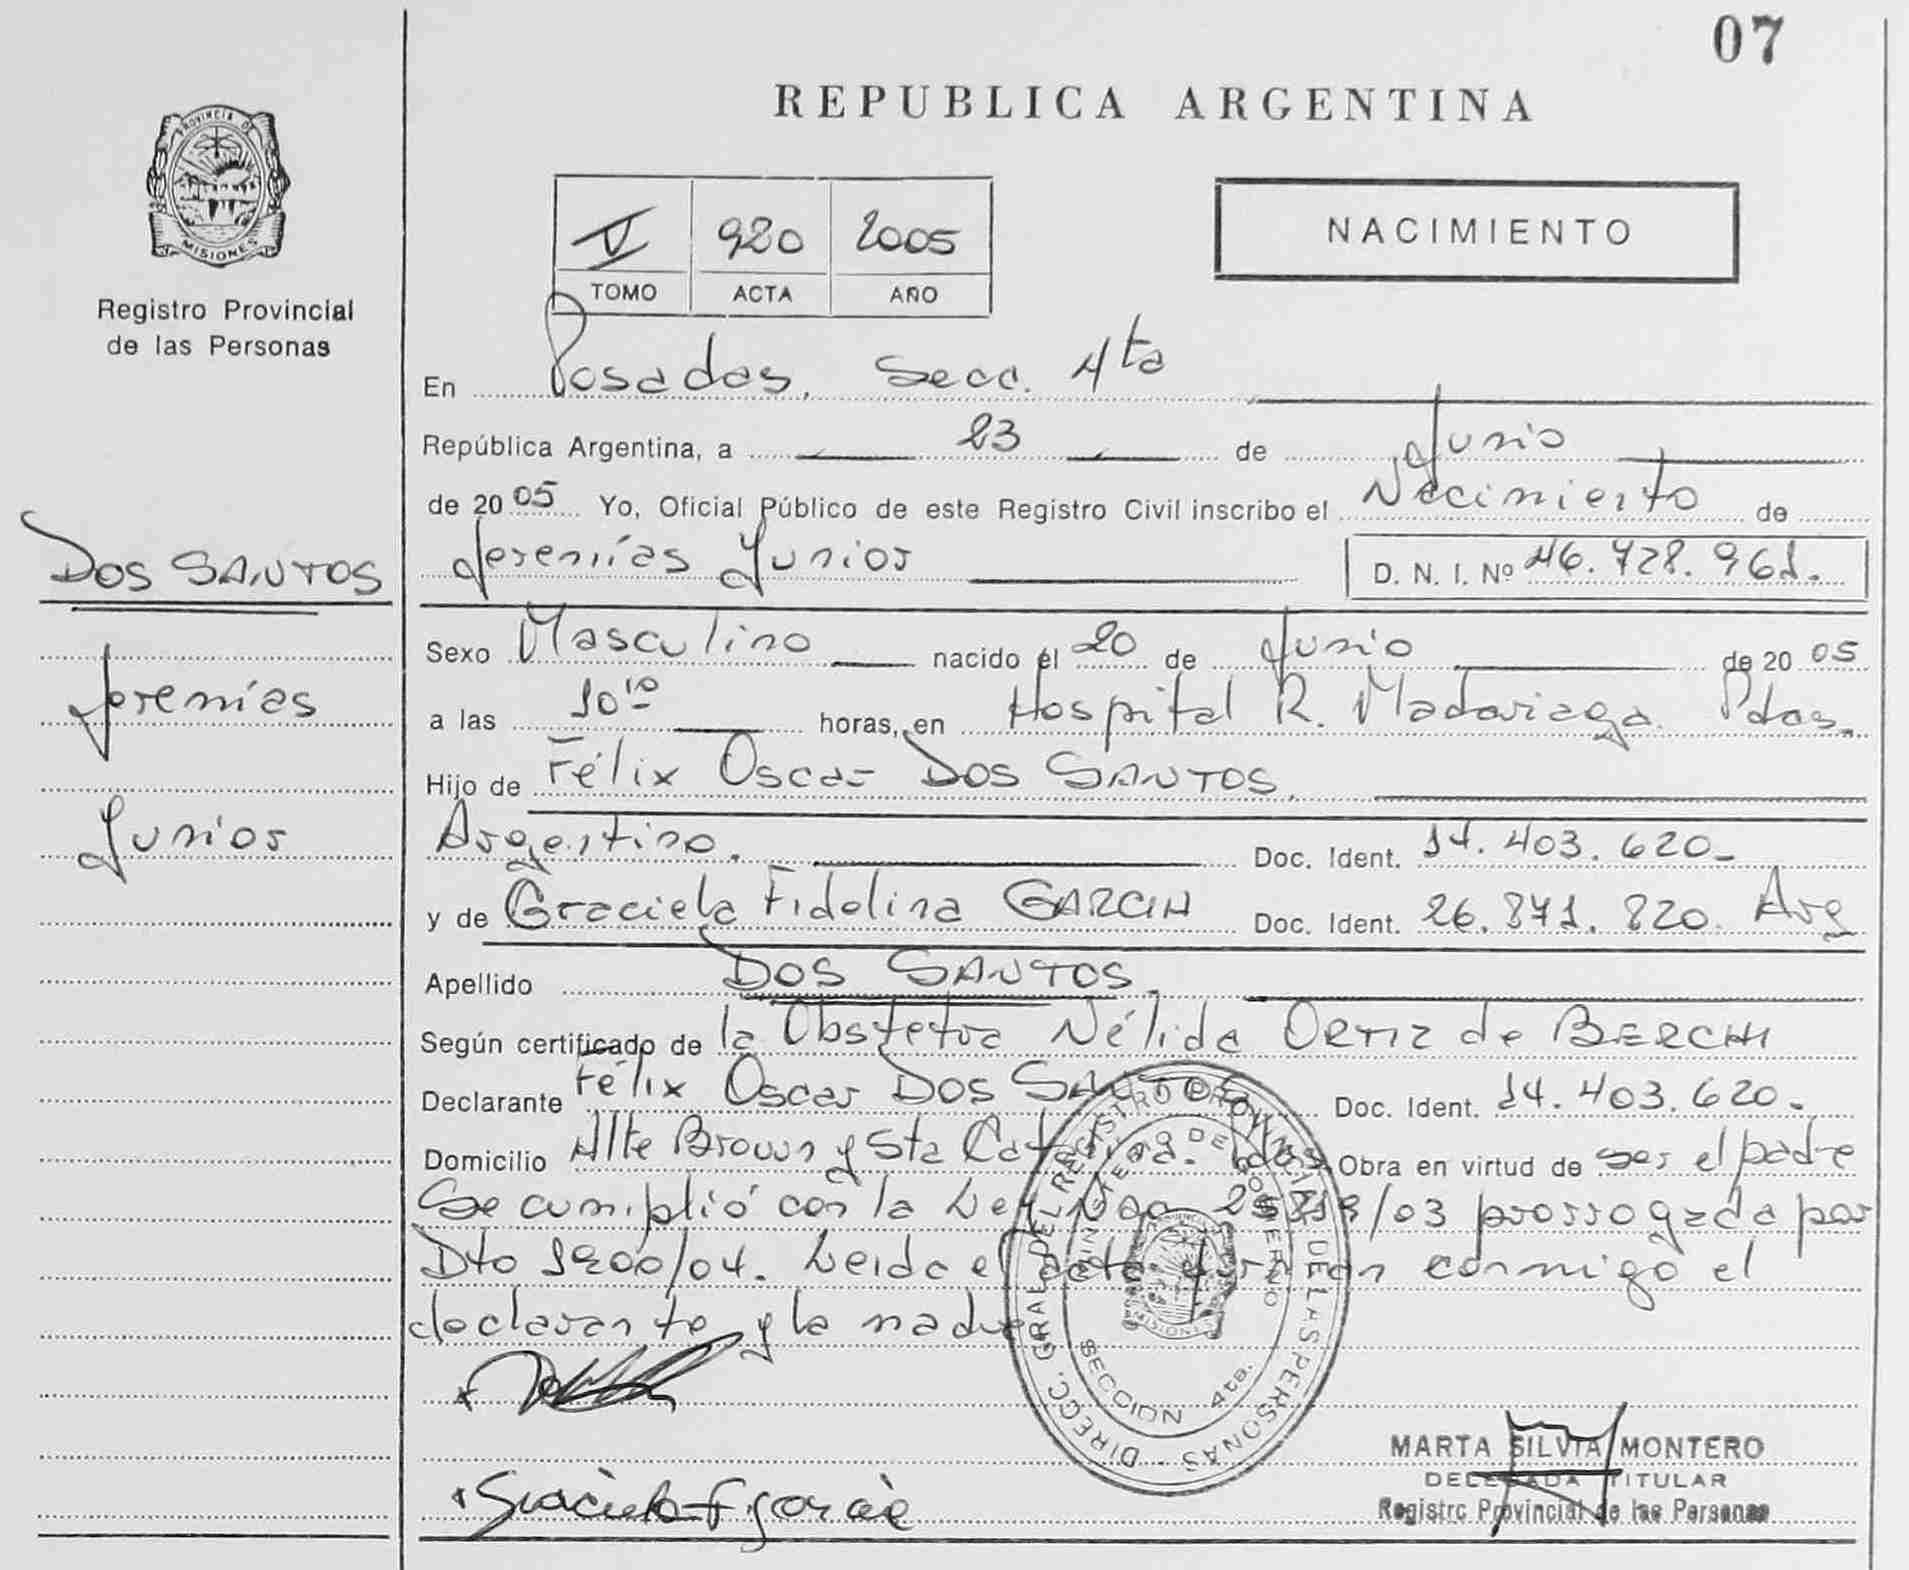 07
REPUBLICA ARGENTINA
PROVINCIA DE
MISIONES
Registro Provincial
de las Personas
V 920 2005
TOMO ACTA AÑO
NACIMIENTO
En Posadas, Secc. 4ta
República Argentina, a 23 de Junio
de 2005 Yo, Oficial Público de este Registro Civil inscribo el Nacimiento de
Jeremías Junior D. N. I. Nº 46.728.961.
DOS SANTOS
Jeremías
Junior
Sexo Masculino nacido el 20 de Junio de 2005
a las 10 10 horas, en Hospital R. Madariaga. Pdas.
Hijo de Félix Oscar DOS SANTOS.
Argentino. Doc. Ident. 14.403.620-
y de Graciela Fidelina GARCIA Doc. Ident. 26.871.820. Arg
Apellido DOS SANTOS.
Según certificado de la Obstetra Nélida ORTIZ de BERCHI
Declarante Félix Oscar DOS SANTOS Doc. Ident. 14.403.620.
Domicilio Alte Brown y Sta Catalina. Pdas. Obra en virtud de ser el padre
Se cumplió con la Ley Nac 25819/03 prorrogada por
Dto 1900/04. Leida el acta firman conmigo el
declarante y la madre
DIRECC. GRAL. DEL REGISTRO PROVINCIAL DE LAS PERSONAS
MINISTERIO DE GOBIERNO
MISIONES
SECCION 4ta.
Graciela F garcia
MARTA SILVIA MONTERO
DELEGADA TITULAR
Registro Provincial de las Personas